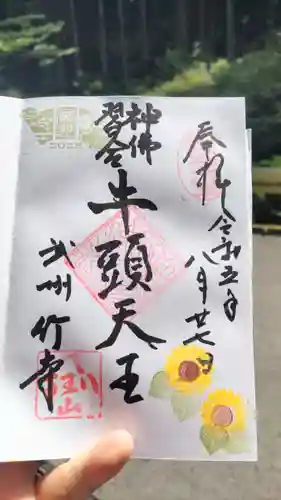 奉拝
令和五年
八月廿七日
神佛
習合
牛頭天王
武州
竹寺